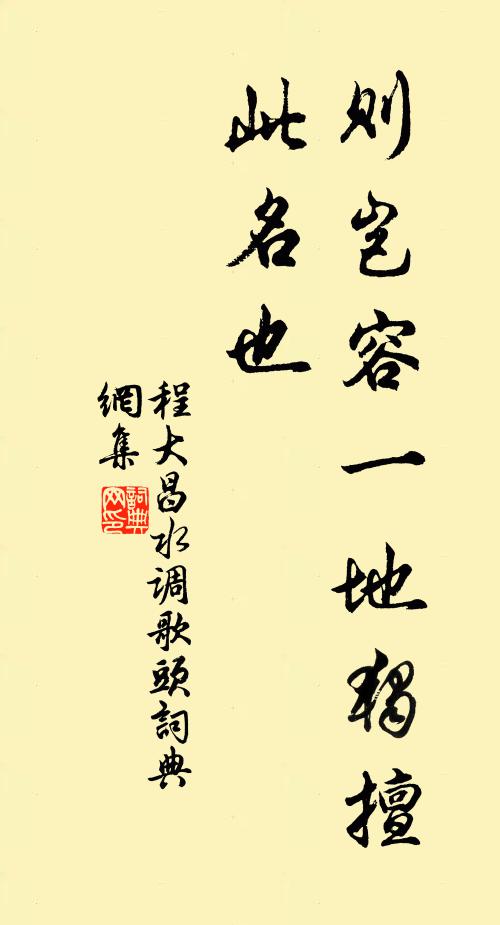 则岂容一地独擅
此名也
程大昌水调歌頭詞典
網集
詞典
网印